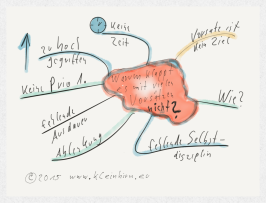 Keine
Zeit
zu hoch
gegriffen
Vorsatz ist
kein Ziel
Keine Prio 1.
Warum klappt
es mit vielen
Vorsätzen
nicht?
Wie?
fehlende
Ausdauer
Ablenkung
fehlende Selbst-
disziplin